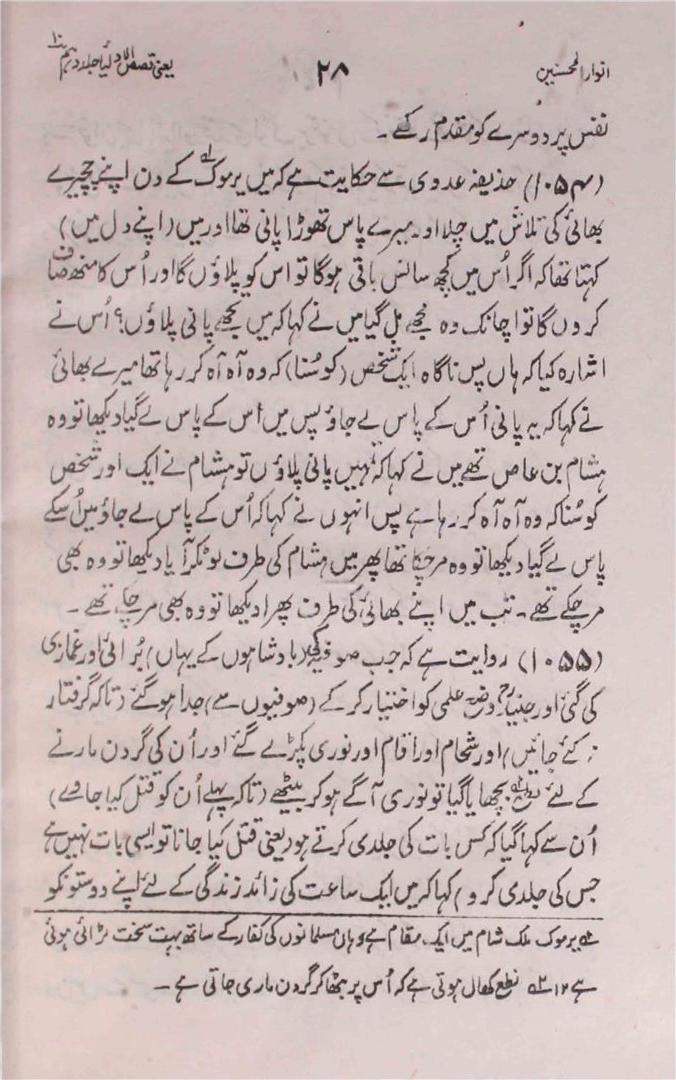 انوار المحسنین ۲۸ یعنی قصص الاولیا جلد دہم ۱۰
نفس پر دوسرے کو مقدم رکھے ۔
(۱۰۵۴) حذیفہ عدوی سے حکایت ہے کہ میں یرموک کے دن اپنے چچیرے
بھائی کی تلاش میں چلا اور میرے پاس تھوڑا پانی تھا اور میں (اپنے دل میں)
کہتا تھا کہ اگر اُس میں کچھ سانس باقی ہوگا تو اس کو پلاؤں گا اور اُس کا منھ صاف
کروں گا تو اچانک وہ مجھے مل گیا میں نے کہا کہ میں تجھے پانی پلاؤں؟ اُس نے
اشارہ کیا کہ ہاں پس ناگاہ ایک شخص (کو سُنا) کہ وہ آہ آہ کر رہا تھا میرے بھائی
نے کہا کہ یہ پانی اُس کے پاس لے جاؤ پس میں اُس کے پاس لے گیا دیکھا تو وہ
ہشام بن عاص تھے میں نے کہا کہ تمہیں پانی پلاؤں تو ہشام نے ایک اور شخص
کو سُنا کہ وہ آہ آہ کر رہا ہے پس انہوں نے کہا کہ اُس کے پاس لے جاؤ میں اُسکے
پاس لے گیا دیکھا تو وہ مرچکا تھا پھر میں ہشام کی طرف لوٹکر آیا دیکھا تو وہ بھی
مرچکے تھے ۔ تب میں اپنے بھائی کی طرف پھرا دیکھا تو وہ بھی مرچکے تھے ۔
(۱۰۵۵) روایت ہے کہ جب صوفیہ کی (بادشاہوں کے یہاں) بُرائی اور غمازی
کی گئی اور جنیدؒ وضع علمی کو اختیار کرکے (صوفیوں سے) جدا ہوگئے (تاکہ گرفتار
نہ کئے جائیں) اور شحام اور اقام اور نوری پکڑے گئے اور اُن کی گردن مارنے
کے لئے نطع بچھایا گیا تو نوری آگے ہوکر بیٹھے (تاکہ پہلے اُن کو قتل کیا جاوے)
اُن سے کہا گیا کہ کس بات کی جلدی کرتے ہو (یعنی قتل کیا جانا تو ایسی بات نہیں ہے
جس کی جلدی کرو) کہا کہ میں ایک ساعت کی زائد زندگی کے لئے اپنے دوستونکو
لے یرموک ملک شام میں ایک مقام ہے وہاں مسلمانوں کی کفار کے ساتھ بہت سخت لڑائی ہوئی
ہے ۱۲ نطع کھال ہوتی ہے کہ اُس پر بٹھا کر گردن ماری جاتی ہے ۔